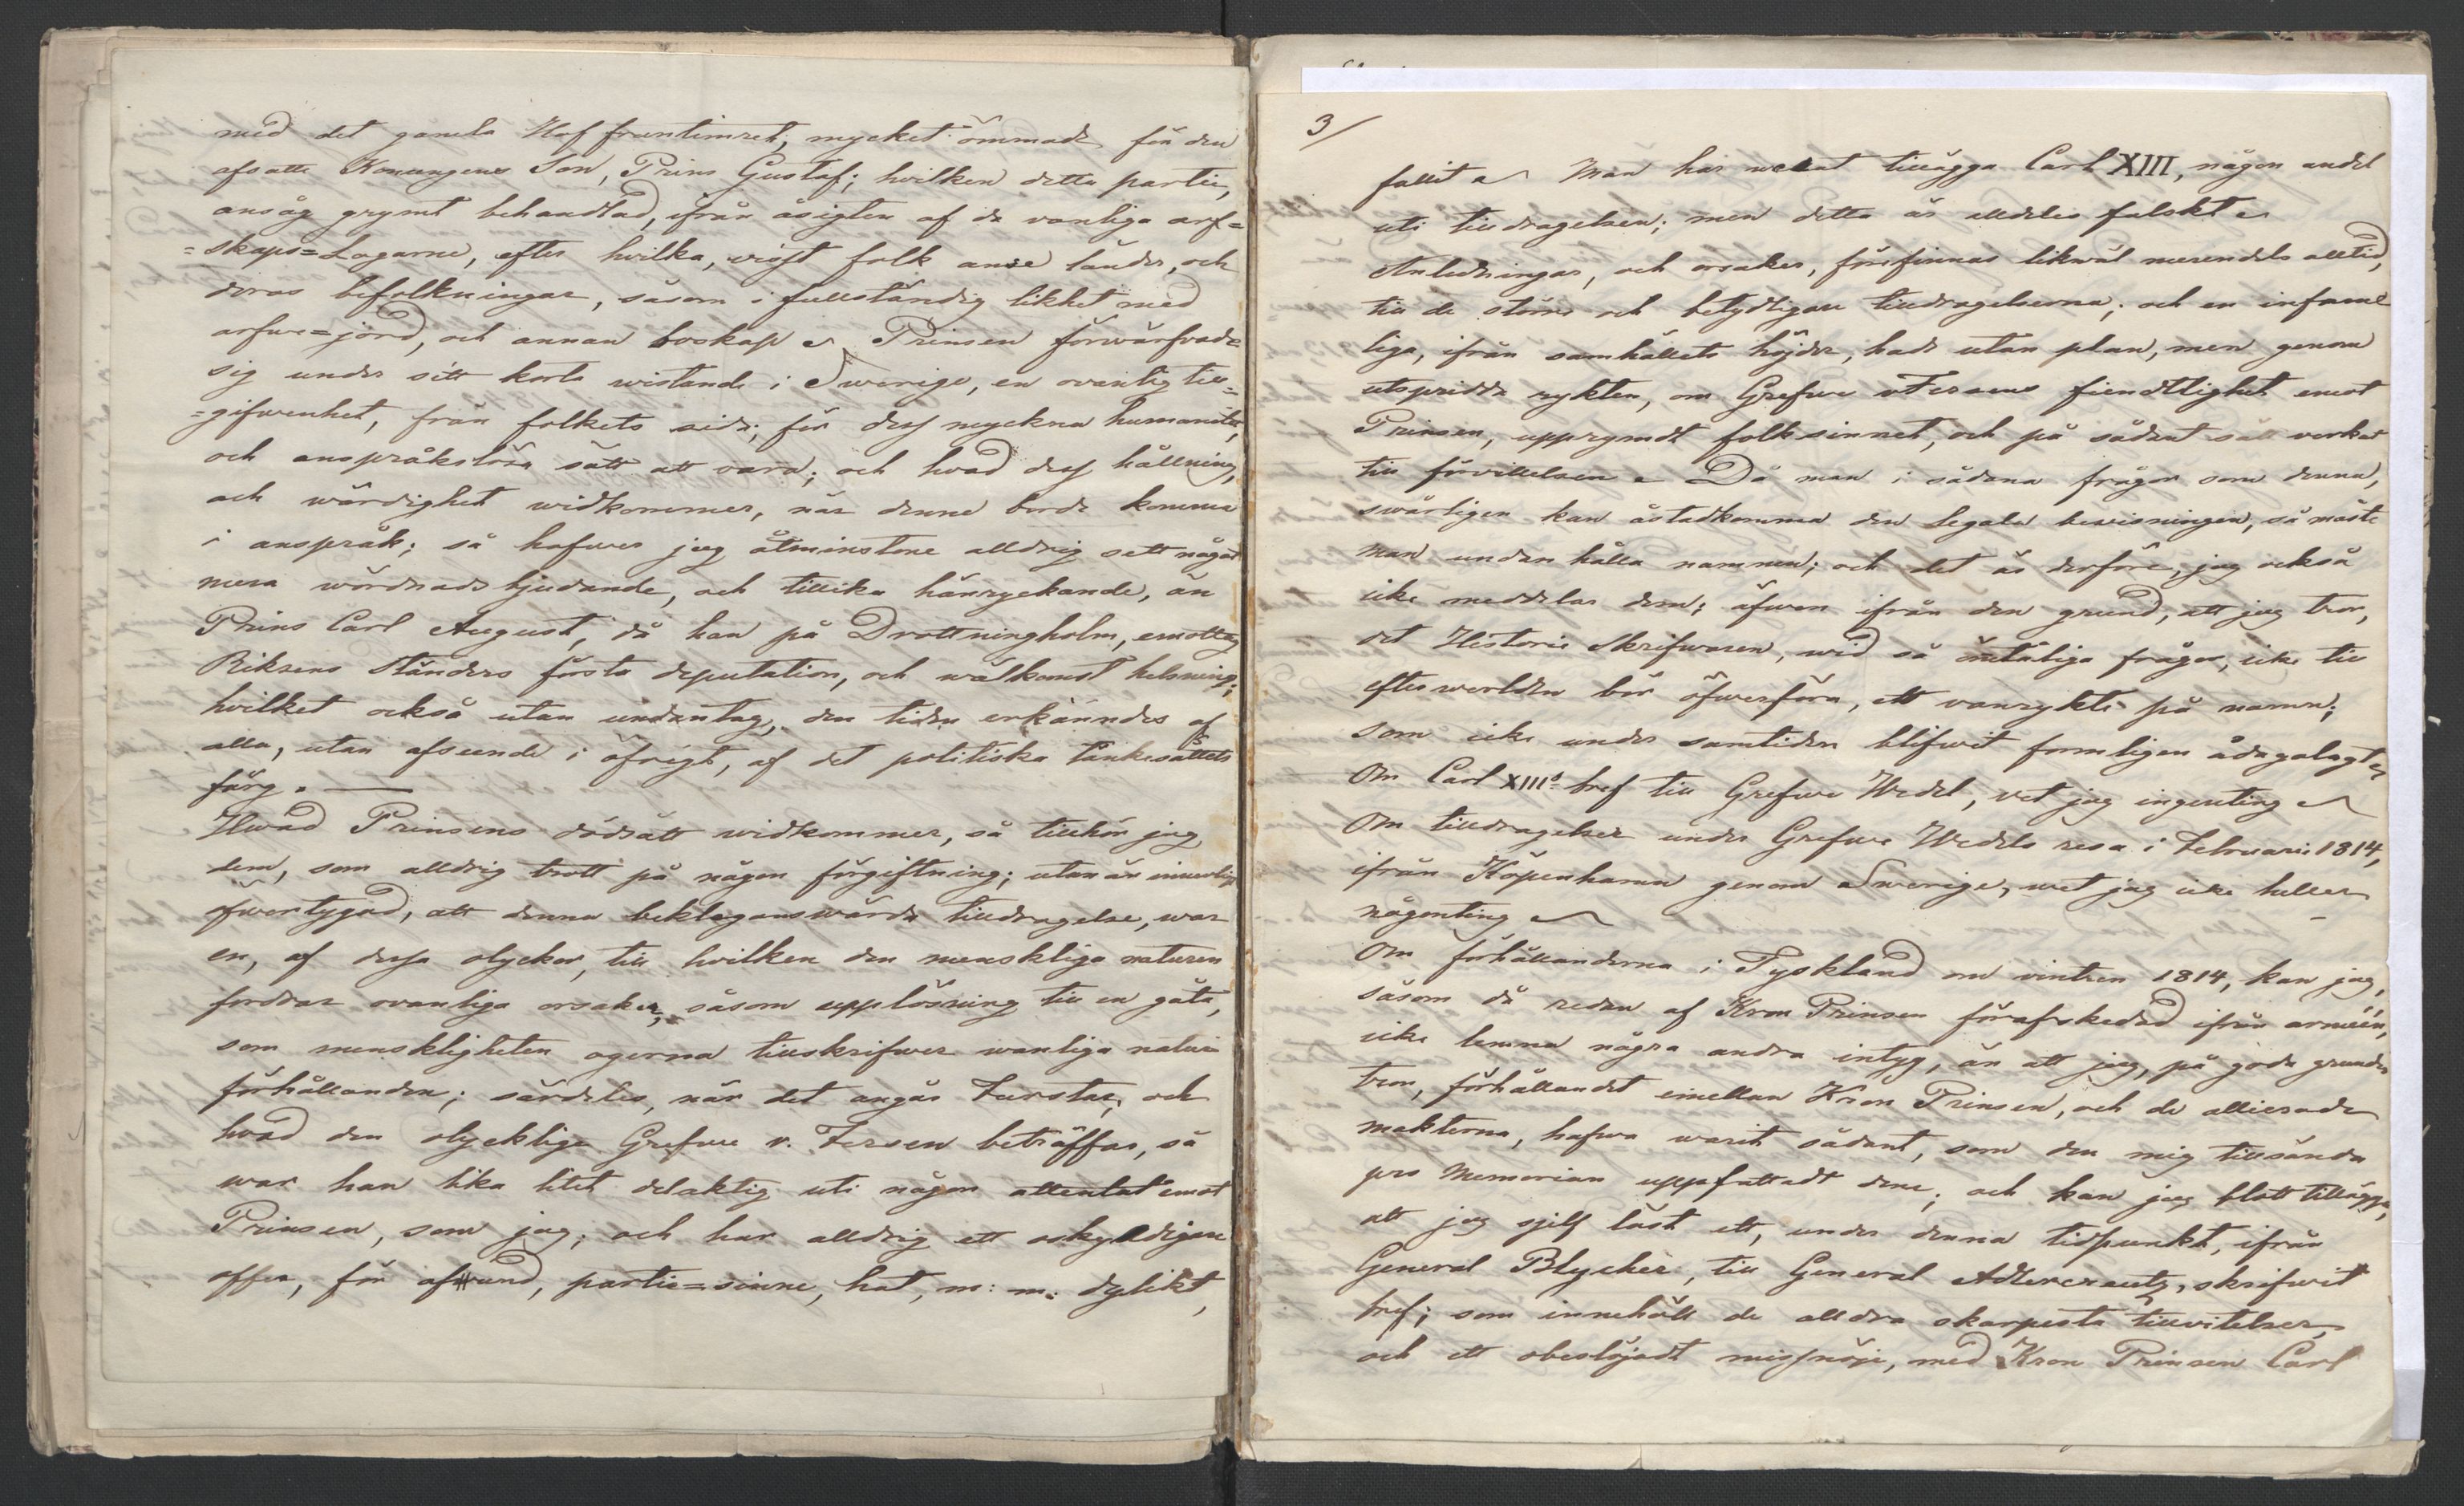 med det gamla Hof fruntimret, mycket ömmade för den
afsatte Konungens Son, Prins Gustaf; hvilken detta partie,
ansåg grymt behandlad, ifrån åsigten af de vanliga arf=
=skaps=Lagarne, efter hvilka, visst folk anse länder, och
deras befolkningar, såsom i fullständig likhet med
arfwe=jord, och annan boskap. Prinsen förwärfvade
sig under sitt korta wistande i Swerige, en ovanlig till=
=gifwenhet, från folkets sida; för dess myckna humanitet,
och anspråkslösa sätt att vara; och hvad dess hållning,
och wärdighet widkommer, när denne borde komma
i anspråk; så hafwer jag åtminstone alldrig sett något
mera wördnads bjudande, och tillika hänryckande, än
Prins Carl August, då han på Drottningholm, emottog
Riksens Ständers första deputation, och wälkomst helsning;
hvilket också utan undantag, den tiden erkändes af
alla, utan afseende i öfrigt, af det politiska tänkesättets
färg. —
Hwad Prinsens dödsätt widkommer, så tillhör jag
dem, som alldrig trott på någon förgiftning; utan är innerligt
öfwertygad, att denna beklagansvärda tilldragelse, war
en, af dessa olyckor, till hvilken den menskliga naturen
fordrar ovanliga orsaker, såsom upplösning till en gåta,
som menskligheten ogerna tillskrifwer wanliga natur
förhållanden; särdeles, när det angår Furstar, och
hvad den olycklige Grefwe v. Fersen beträffar, så
war han lika litet delaktig uti någon attentat emot
Prinsen, som jag; och har alldrig ett oskyldigare
offer, för afund, partie=sinne, hat, m: m: dylikt,
3/
fallit. Man har welat tillägga Carl XIII, någon andel
uti tilldragelsen; men detta är alldeles falskt.
Anledningar, och orsaker, förefinnas likwäl merendels alltid,
till de större och betydligare tilldragelserna; och en infame
liga, ifrån samhällets höjder, hade utan plan, men genom
utspridda rykten, om Grefwe v Fersens fiendtlighet emot
Prinsen, upprymdt folksinnet, och på sådant sätt verkat
till förvillelsen. Då man i sådana frågor som denna,
swårligen kan åstadkomma den legala bevisningen, så måste
man undanhålla namnen; och det är derföre, jag också
icke meddelar dem; äfwen ifrån den grund, att jag tror,
det Historie Skrifwaren, wid så ömtåliga frågor, icke till
efterwerlden bör öfwerföra, ett vanrykte på namn;
som icke under samtiden blifwit formligen ådagalagt.
Om Carl XIIIs bref till Grefwe Wedel, vet jag ingenting
Om tilldragelser under Grefwe Wedels resa i Februarii 1814,
ifrån Köpenhamn genom Swerige, wet jag icke heller
någonting
Om förhållanderna i Tyskland om vintren 1814, kan jag,
såsom då redan af Kron Prinsen förafskedad ifrån arméen,
icke lemna några andra intyg, än att jag, på goda grunder
tror, förhållandet emellan Kron Prinsen, och de allierade
makterna, hafwa warit sådant, som den mig tillsända
pro Memorian uppfattadt dem; och kan jag blott tillägga,
att jag sjelf läst ett, under denna tidpunkt, ifrån
General Blycher, till General Adlercreutz, skrifwit
bref; som innehöll de alldra skarpesta tillvitelser,
och ett obeslöjadt missnöje, med Kron Prinsen Carl